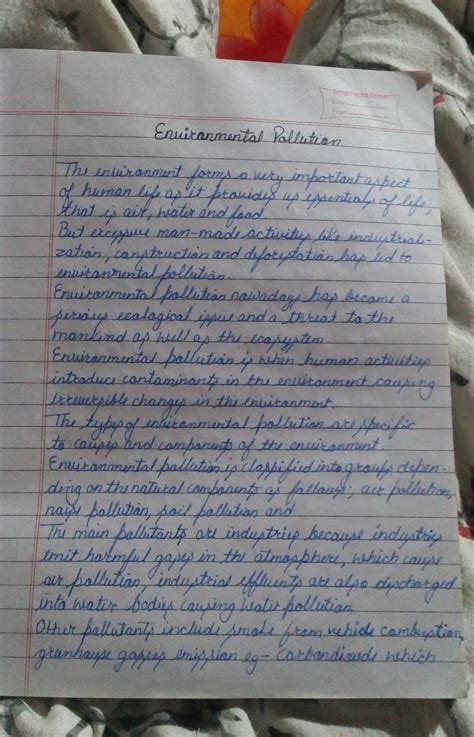 Impressions
Date
Page
Environmental Pollution
The environment forms a very important aspect
of human life as it provides us essentials of life,
that is air, water and food.
But excessive man-made activities like industriali-
zation, construction and deforestation has led to
environmental pollution.
Environmental pollution nowadays has become a
serious ecological issue and a threat to the
mankind as well as the ecosystem.
Environmental pollution is when human activities
introduce contaminants in the environment causing
irreversible changes in the environment.
The types of environmental pollution are specific
to causes and components of the environment.
Environmental pollution is classified into groups depen-
ding on the natural components as follows; air pollution,
noise pollution, soil pollution and
The main pollutants are industries because industries
emit harmful gases in the atmosphere, which cause
air pollution, industrial effluents are also discharged
into water bodies causing water pollution
Other pollutants include smoke from vehicle combustion,
greenhouse gasses emission eg- Carbondioxide which